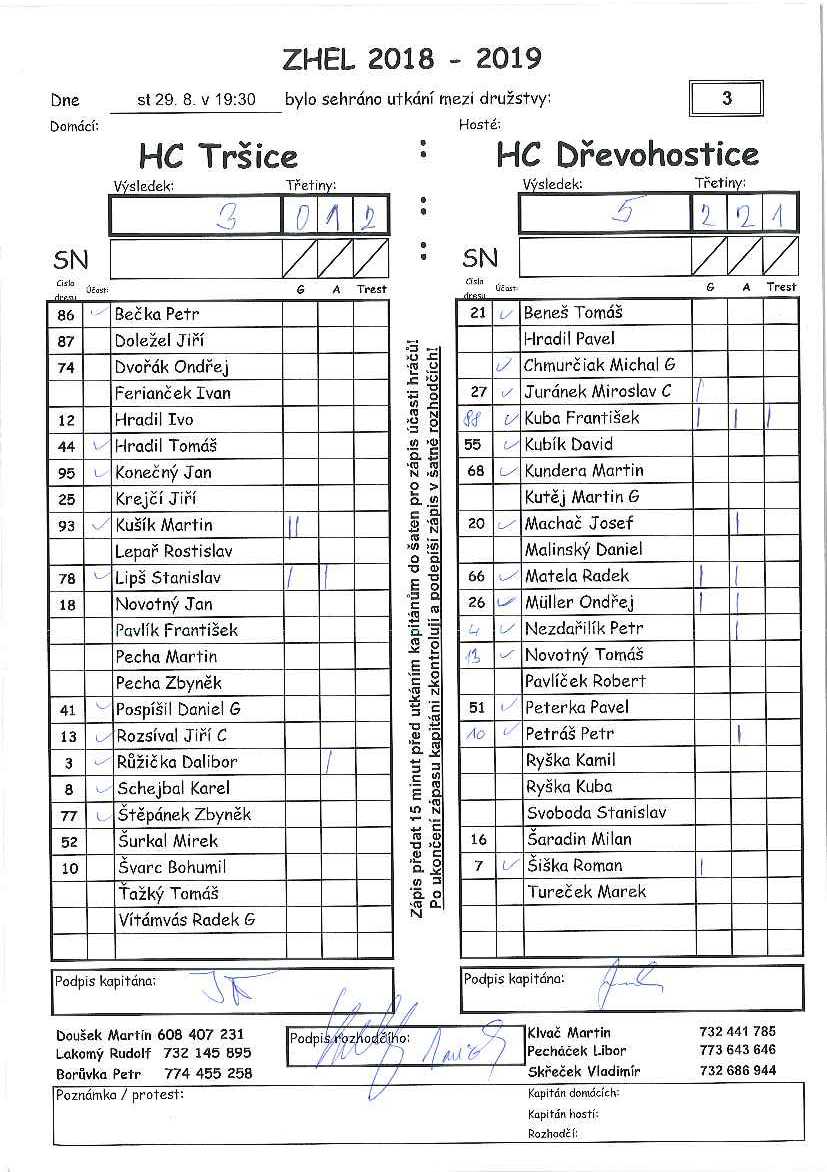 ZHEL 2018 - 2019
Dne st 29. 8. v 19:30 bylo sehráno utkání mezi družstvy: 3
Domácí: Hosté:
HC Tršice : HC Dřevohostice
Výsledek: Třetiny: : Výsledek: Třetiny:
3 0 1 2 5 2 2 1
SN : SN
Číslo dresu Účast: G A Trest Číslo dresu Účast: G A Trest
86 ✓ Bečka Petr
87 Doležel Jiří
74 Dvořák Ondřej
Ferianček Ivan
12 Hradil Ivo
44 ✓ Hradil Tomáš
95 ✓ Konečný Jan
25 Krejčí Jiří
93 ✓ Kušík Martin ||
Lepař Rostislav
78 ✓ Lipš Stanislav | |
18 Novotný Jan
Pavlík František
Pecha Martin
Pecha Zbyněk
41 ✓ Pospíšil Daniel G
13 ✓ Rozsíval Jiří C
3 ✓ Růžička Dalibor |
8 ✓ Schejbal Karel
77 ✓ Štěpánek Zbyněk
52 Šurkal Mirek
10 Švarc Bohumil
Ťažký Tomáš
Vítámvás Radek G
Zápis předat 15 minut před utkáním kapitánům do šaten pro zápis účasti hráčů!
Po ukončení zápasu kapitáni zkontrolují a podepíší zápis v šatně rozhodčích!
21 ✓ Beneš Tomáš
Hradil Pavel
✓ Chmurčiak Michal G
27 ✓ Juránek Miroslav C |
88 ✓ Kuba František | | |
55 ✓ Kubík David
68 ✓ Kundera Martin
Kutěj Martin G
20 ✓ Machač Josef |
Malinský Daniel
66 ✓ Matela Radek | |
26 ✓ Müller Ondřej | |
4 ✓ Nezdařilík Petr |
13 ✓ Novotný Tomáš
Pavlíček Robert
51 ✓ Peterka Pavel
10 ✓ Petráš Petr |
Ryška Kamil
Ryška Kuba
Svoboda Stanislav
16 Šaradin Milan
7 ✓ Šiška Roman |
Tureček Marek
Podpis kapitána: Podpis kapitána:
Doušek Martin 608 407 231 Podpis rozhodčího: Klvač Martin 732 441 785
Lakomý Rudolf 732 145 895 Pecháček Libor 773 643 646
Borůvka Petr 774 455 258 Skřeček Vladimír 732 686 944
Poznámka / protest: Kapitán domácích:
Kapitán hostí:
Rozhodčí: